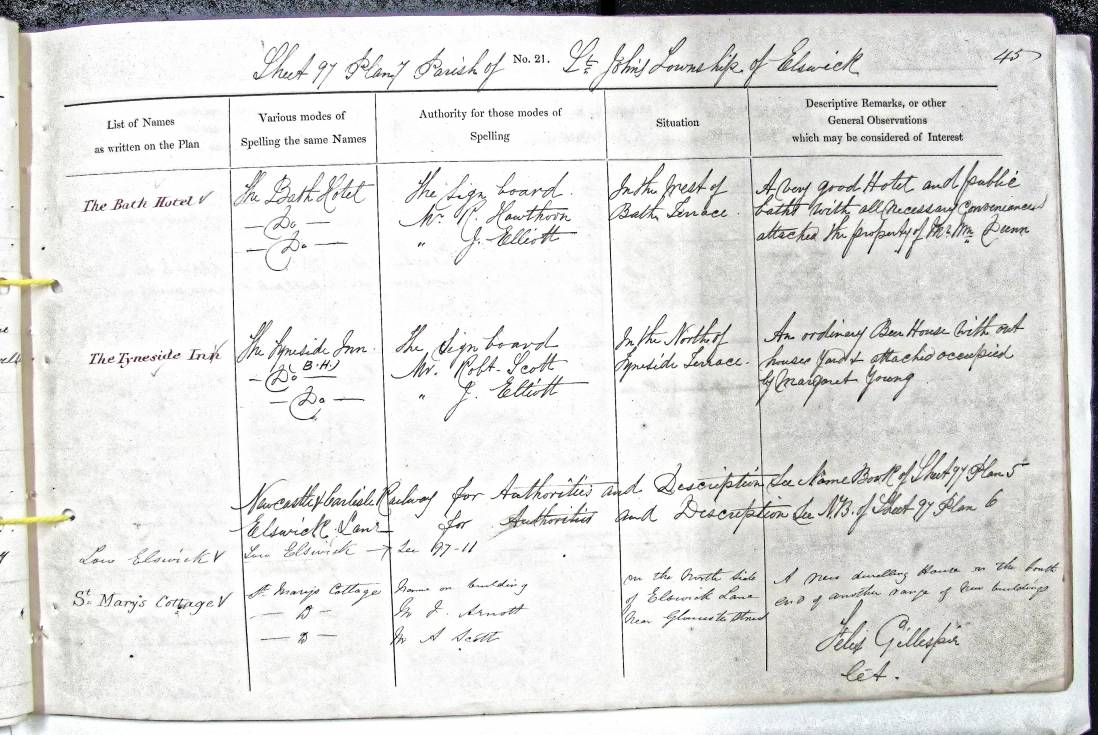 Sheet 97 Plan 7 Parish of No. 21. St Johns Township of Elswick 45
List of Names
as written on the Plan
Various modes of
Spelling the same Names
Authority for those modes of
Spelling
Situation
Descriptive Remarks, or other
General Observations
which may be considered of Interest
The Bath Hotel ✓
The Bath Hotel
— Do —
— Do —
The Sign board
Mr. R. Hawthorn
" J. Elliott
In the West of
Bath Terrace.
A very good Hotel and public
baths with all necessary conveniences
attached the property of Mr. Wm. Dunn
The Tyneside Inn ✓
The Tyneside Inn.
— Do (B.H.) —
— Do —
The Sign board
Mr. Robt. Scott
" J. Elliott
In the North of
Tyneside Terrace.
An ordinary Beer House with out
houses Yard & attached occupied
by Margaret Young
Newcastle & Carlisle Railway for Authorities and Description See Name Book of Sheet 97 Plan 5
Elswick Lane for Authorities and Description See N.B. of Sheet 97 Plan 6
Low Elswick ✓
Low Elswick — See 97-11
St. Mary's Cottage ✓
St. Mary's Cottage
— D —
— D —
Name on building
Mr J. Arnott
Mr A Scott
on the North side
of Elswick Lane
near Gloucester Street
A new dwelling House on the South
end of another range of new buildings
Felix Gillespie
C.A.